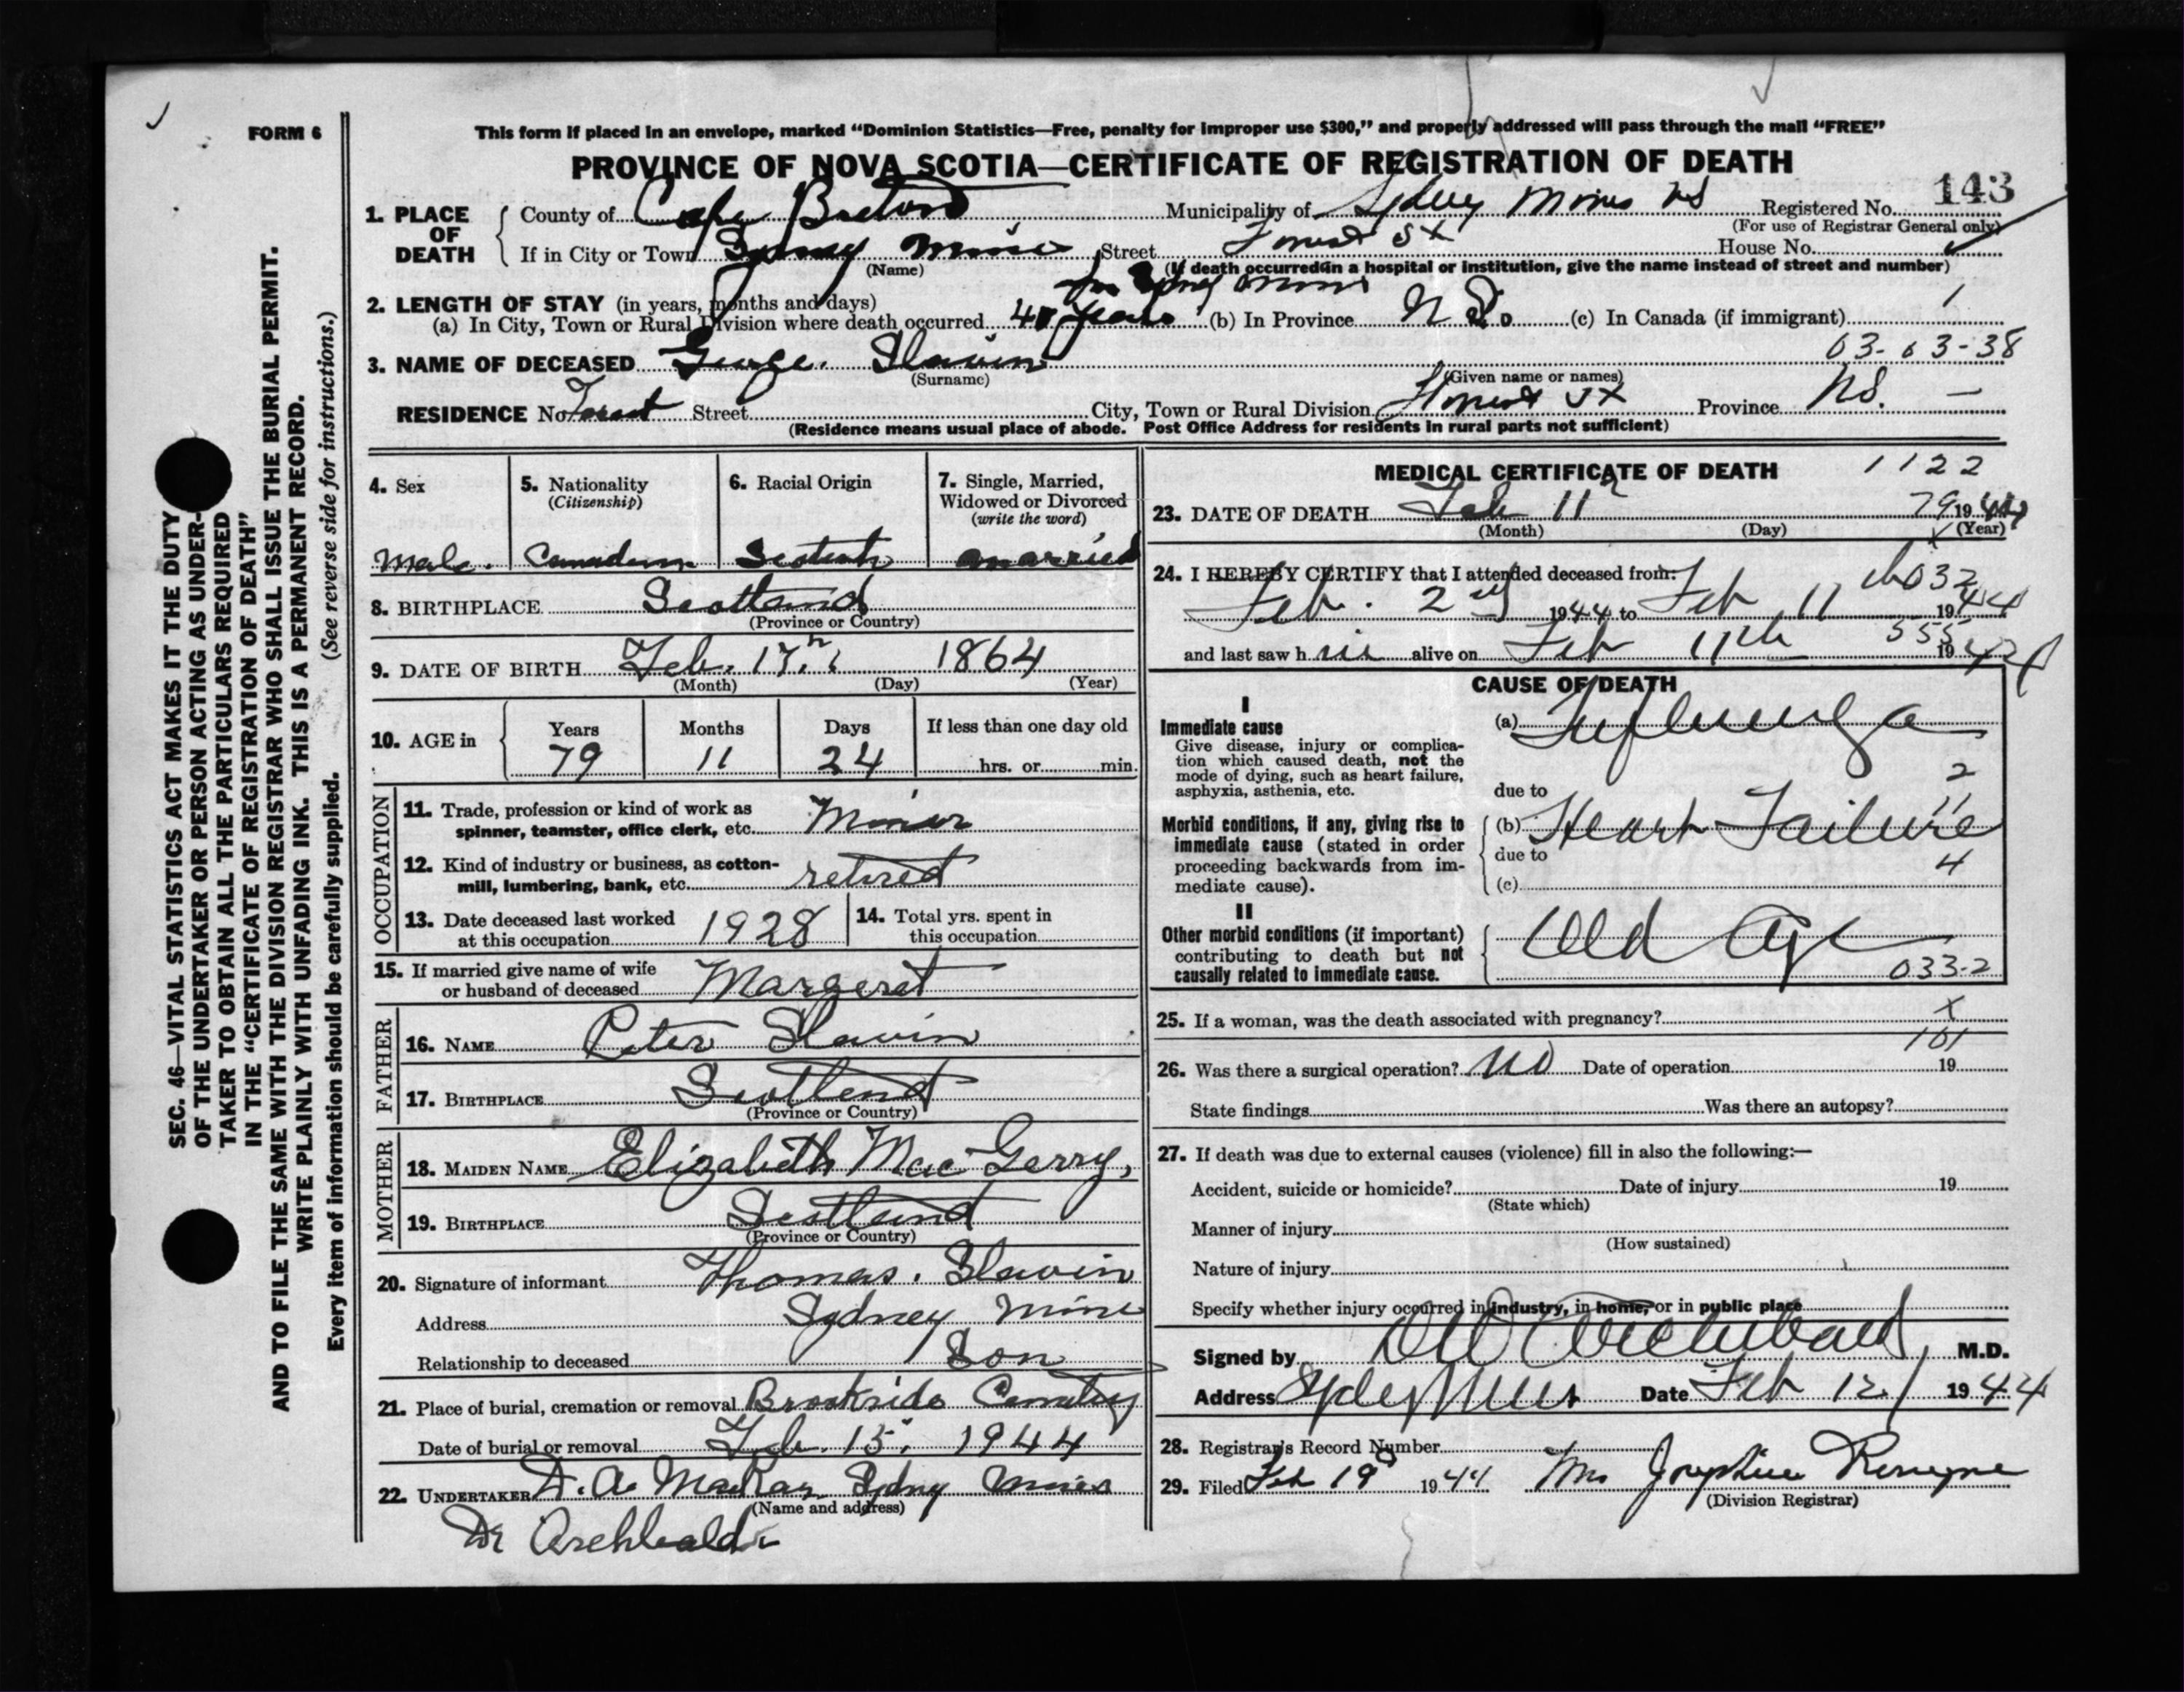 FORM 6
This form if placed in an envelope, marked "Dominion Statistics—Free, penalty for improper use $300," and properly addressed will pass through the mail "FREE"
PROVINCE OF NOVA SCOTIA—CERTIFICATE OF REGISTRATION OF DEATH
143
1. PLACE OF DEATH
County of Cape Breton Municipality of Sydney Mines NS Registered No.
(For use of Registrar General only)
If in City or Town Sydney Mines Street Forest St House No.
(Name) (If death occurred in a hospital or institution, give the name instead of street and number)
2. LENGTH OF STAY (in years, months and days) In Sydney Mines
(a) In City, Town or Rural Division where death occurred years (b) In Province N S. (c) In Canada (if immigrant)
03-03-38
3. NAME OF DECEASED George. Slavin
(Surname) (Given name or names)
RESIDENCE No Forest Street City, Town or Rural Division Forest St Province NS. —
(Residence means usual place of abode. Post Office Address for residents in rural parts not sufficient)
4. Sex
Male.
5. Nationality
(Citizenship)
Canadian
6. Racial Origin
Scotch
7. Single, Married,
Widowed or Divorced
(write the word)
married
8. BIRTHPLACE Scotland
(Province or Country)
9. DATE OF BIRTH Feb. 17th 1864
(Month) (Day) (Year)
10. AGE in Years Months Days If less than one day old
79 11 24 hrs. or min.
OCCUPATION
11. Trade, profession or kind of work as
spinner, teamster, office clerk, etc. Miner
12. Kind of industry or business, as cotton-
mill, lumbering, bank, etc. retired
13. Date deceased last worked
at this occupation 1928
14. Total yrs. spent in
this occupation
15. If married give name of wife
or husband of deceased Margeret
FATHER
16. NAME Peter Slavin
17. BIRTHPLACE Scotland
(Province or Country)
MOTHER
18. MAIDEN NAME Elizabeth Mac Gerry,
19. BIRTHPLACE Scotland
(Province or Country)
20. Signature of informant Thomas. Slavin
Address Sydney Mine
Relationship to deceased Son
21. Place of burial, cremation or removal Brookside Cemetry
Date of burial or removal Feb. 15, 1944
22. UNDERTAKER D. A. MacRae Sydney Mines
(Name and address)
Dr Archbald
MEDICAL CERTIFICATE OF DEATH 1122
23. DATE OF DEATH Feb 11 79 1944
(Month) (Day) (Year)
24. I HEREBY CERTIFY that I attended deceased from:
Feb. 2nd 1944 to Feb 11 1944
and last saw h alive on Feb 11th 555 1944
CAUSE OF DEATH
I
Immediate cause
Give disease, injury or complica-
tion which caused death, not the
mode of dying, such as heart failure,
asphyxia, asthenia, etc.
(a) Influenza
2
due to
11
Morbid conditions, if any, giving rise to
immediate cause (stated in order
proceeding backwards from im-
mediate cause).
(b) Heart Failure
due to
4
(c)
II
Other morbid conditions (if important)
contributing to death but not
causally related to immediate cause.
Old Age
033-2
25. If a woman, was the death associated with pregnancy? x
101
26. Was there a surgical operation? no Date of operation 19
State findings Was there an autopsy?
27. If death was due to external causes (violence) fill in also the following:—
Accident, suicide or homicide? Date of injury 19
(State which)
Manner of injury
(How sustained)
Nature of injury
Specify whether injury occurred in industry, in home, or in public place
Signed by Archibald, M.D.
Address Sydney Mines Date Feb 12 1944
28. Registrar's Record Number
29. Filed Feb 19 1944 Mrs Josephine
(Division Registrar)
SEC. 46—VITAL STATISTICS ACT MAKES IT THE DUTY
OF THE UNDERTAKER OR PERSON ACTING AS UNDER-
TAKER TO OBTAIN ALL THE PARTICULARS REQUIRED
IN THE "CERTIFICATE OF REGISTRATION OF DEATH"
AND TO FILE THE SAME WITH THE DIVISION REGISTRAR WHO SHALL ISSUE THE BURIAL PERMIT.
WRITE PLAINLY WITH UNFADING INK. THIS IS A PERMANENT RECORD.
Every item of information should be carefully supplied. (See reverse side for instructions.)